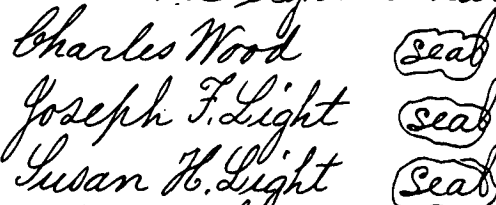 Charles Wood seal
Joseph F. Light seal
Susan H. Light seal